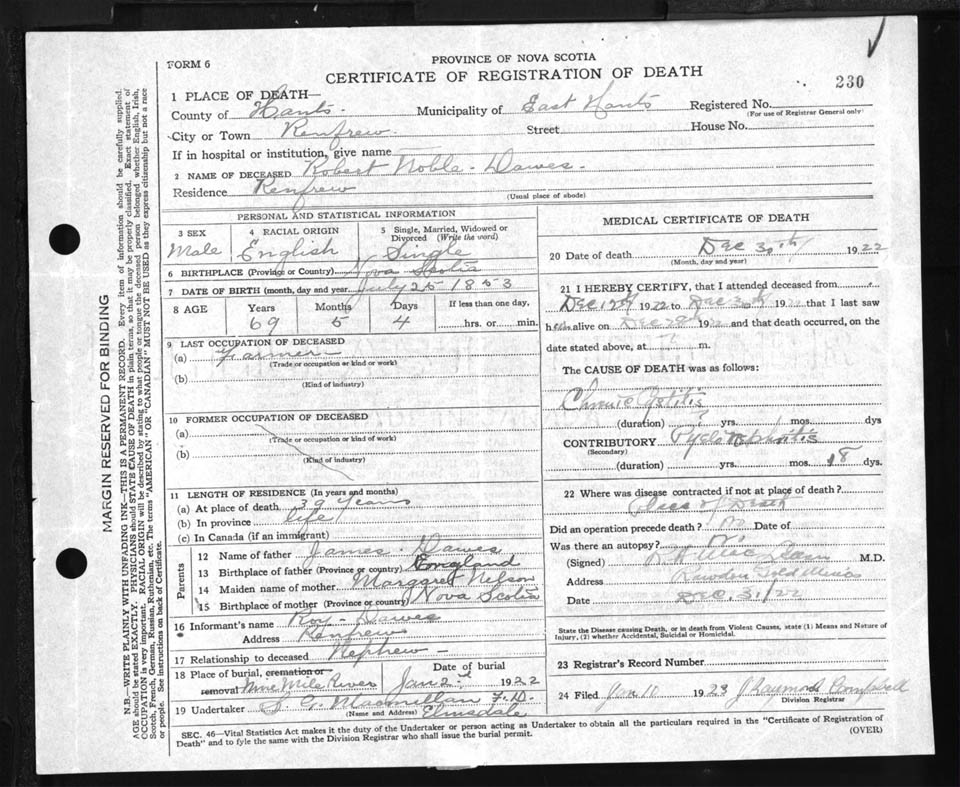 FORM 6
PROVINCE OF NOVA SCOTIA
CERTIFICATE OF REGISTRATION OF DEATH
230
1 PLACE OF DEATH—
County of Hants. Municipality of East Hants Registered No.
(For use of Registrar General only)
City or Town Renfrew Street House No.
If in hospital or institution, give name
2 NAME OF DECEASED Robert Noble Dawes
Residence Renfrew
(Usual place of abode)
PERSONAL AND STATISTICAL INFORMATION
3 SEX Male
4 RACIAL ORIGIN English
5 Single, Married, Widowed or Divorced (Write the word) Single
6 BIRTHPLACE (Province or Country) Nova Scotia
7 DATE OF BIRTH (month, day and year) July 25 1853
8 AGE Years 69 Months 5 Days 4 If less than one day, hrs. or min.
9 LAST OCCUPATION OF DECEASED
(a) Farmer
(Trade or occupation or kind or work)
(b)
(Kind of industry)
10 FORMER OCCUPATION OF DECEASED
(a)
(Trade or occupation or kind of work)
(b)
(Kind of industry)
11 LENGTH OF RESIDENCE (In years and months)
(a) At place of death 39 Years
(b) In province life
(c) In Canada (if an immigrant)
Parents
12 Name of father James Dawes
13 Birthplace of father (Province or country) England
14 Maiden name of mother Margaret Nelson
15 Birthplace of mother (Province or country) Nova Scotia
16 Informant's name Roy Dawes
Address Renfrew
17 Relationship to deceased Nephew
18 Place of burial, cremation or removal Nine Mile River
Date of burial Jan 2nd 1922
19 Undertaker
(Name and Address) Elmsdale
MEDICAL CERTIFICATE OF DEATH
20 Date of death Dec 30th 1922
(Month, day and year)
21 I HEREBY CERTIFY, that I attended deceased from
Dec 12th 1922 to Dec 1922 that I last saw
h alive on Dec 19 and that death occurred, on the
date stated above, at m.
The CAUSE OF DEATH was as follows:
Chronic Cystitis
(duration) ? yrs. mos. dys
CONTRIBUTORY Pyelo Nephritis
(Secondary)
(duration) yrs. mos. 18 dys.
22 Where was disease contracted if not at place of death?
Place of Death
Did an operation precede death? No Date of
Was there an autopsy? No
(Signed) M.D.
Address Rawdon Gold Mines
Date Dec. 31/22
State the Disease causing Death, or in death from Violent Causes, state (1) Means and Nature of
Injury, (2) whether Accidental, Suicidal or Homicidal.
23 Registrar's Record Number
24 Filed Jan 1923 J Raymond Campbell
Division Registrar
SEC. 46—Vital Statistics Act makes it the duty of the Undertaker or person acting as Undertaker to obtain all the particulars required in the "Certificate of Registration of
Death" and to fyle the same with the Division Registrar who shall issue the burial permit.
(OVER)
MARGIN RESERVED FOR BINDING
N.B.—WRITE PLAINLY WITH UNFADING INK—THIS IS A PERMANENT RECORD. Every item of information should be carefully supplied.
AGE should be stated EXACTLY. PHYSICIANS should STATE CAUSE OF DEATH in plain terms, so that it may be properly classified. Exact statement of
OCCUPATION is very important. RACIAL ORIGIN will be described by stating to what people or tongue the deceased person belonged whether English, Irish,
Scotch, French, German, Russian, Ruthenian, etc. The terms "AMERICAN" OR "CANADIAN" MUST NOT BE USED as they express citizenship but not a race
or people. See instructions on back of Certificate.